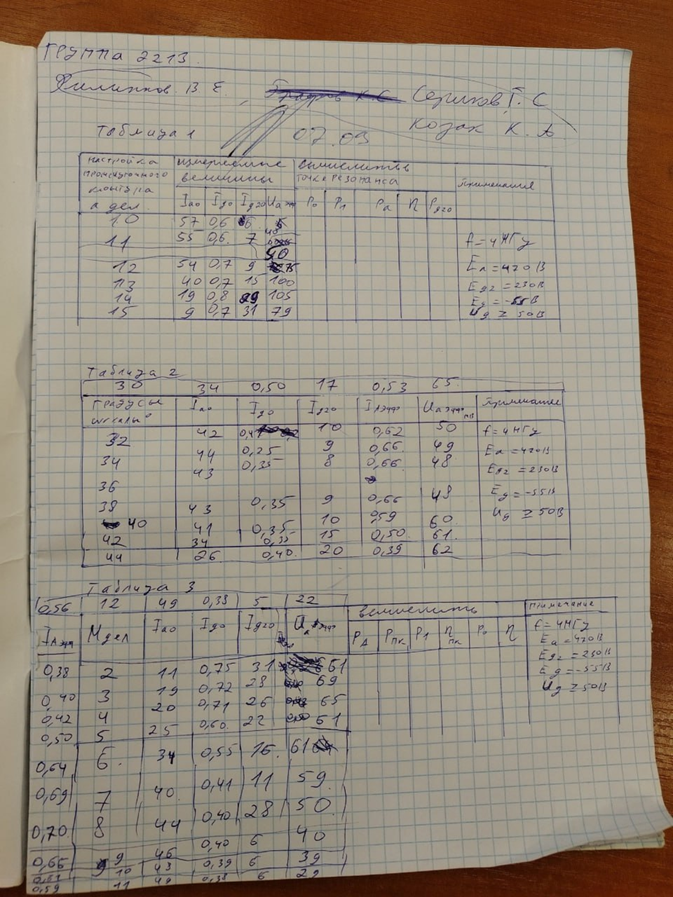 ГРУППА 2213.
Филиппов В Е, Сериков Г. С
Козак К. А
Таблица 1 07.03
настройка промежуточного контура в дел. измеряемые величины вычислить точка резонанса примечание
Iа0 Ig0 Ig20 Uа P0 P1 Pa η Pg20
10 57 0,6 6 5
11 55 0,6 7 40 f=4МГц
90
12 54 0,7 9 75 Ea=420В
13 40 0,7 15 100 Eg2=230В
14 19 0,8 29 105 Eg=-55В
15 9 0,7 31 79 Ug ≥ 50В
Таблица 2
30 34 0,50 17 0,53 65
Градусы шкалы° Iа0 Ig0 Ig20 IАэфф UАэфф Примечание
32 42 0,41 10 0,62 50 f=4МГц
34 44 0,25 9 0,66 49 Ea=420В
43 0,35 8 0,66 48 Eg2=230В
36
38 43 0,35 9 0,66 48 Eg=-55В
40 41 0,35 10 0,59 60 Ug ≥ 50В
42 34 0,35 15 0,50 61
44 26 0,40 20 0,39 62
Таблица 3
0,56 12 49 0,39 5 22 вычислить примечание
IАэфф Mдел Iа0 Ig0 Ig20 UАэфф PA Pпк P1 ηпк P0 η f=4МГц
Ea=420В
Eg2=230В
Eg=-55В
Ug ≥ 50В
0,38 2 11 0,75 31 61
0,40 3 19 0,72 28 69
0,42 4 20 0,71 26 65
0,50 5 25 0,60 22 61
0,64 6 34 0,55 16 61
0,69 7 40 0,41 11 59
0,70 8 44 0,40 28 50
0,66 9 46 0,40 6 40
0,61 10 43 0,39 6 39
0,59 11 49 0,38 6 29